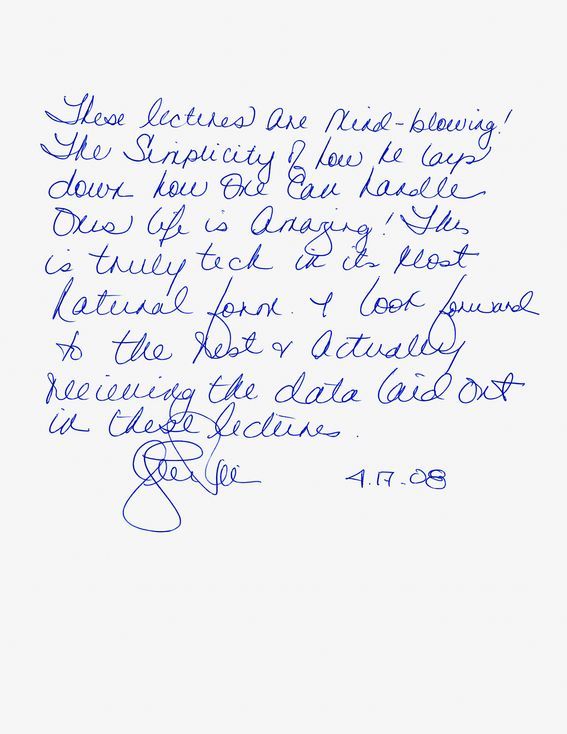 These lectures are mind-blowing!
The Simplicity of how he lays
down how one can handle
ones life is amazing! This
is truly tech in its most
natural form. I look forward
to the rest & actually
receiving the data laid out
in these lectures.
4.17.08